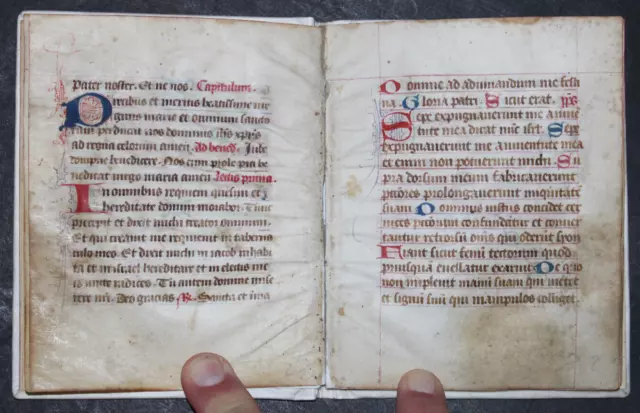 Pater noster. Et ne nos. Capitulum.
Precibus et meritis beatissime vir
ginis marie et omnium sancto
rum perducat nos dominus ihs xprs
ad regna celorum amen. Ad bened. Iube
dompne benedicere. Nos cum prole pia be
nedicat virgo maria amen Lectio prima
In omnibus requiem quesivi et in
hereditate domini morabor. Tunc
precepit et dixit michi creator omnium.
Et qui creavit me requievit in taberna
culo meo. Et dixit michi in iacob inhabi
ta et in israel hereditare et in electis me
is mitte radices. Tu autem domine mise
rere nri. Deo gracias R. Sancta et ima
Domine ad adiuvandum me festi
na. Gloria patri. Sicut erat. ps
Sepe expugnaverunt me a iuven
tute mea dicat nunc isrl. Sepe
expugnaverunt me a iuventute mea
et enim non potuerunt michi. Su
pra dorsum meum fabricaverunt
peccores prolongaverunt iniquitate
suam Dominus iustus concidet cer
vices peccorum confundantur et conver
tantur retrorsum omnes qui oderunt syon
Fiant sicut fenum tectorum quod
priusquam evellatur exaruit De quo
non implevit manum suam qui metet
et sinum suum qui manipulos colliget.